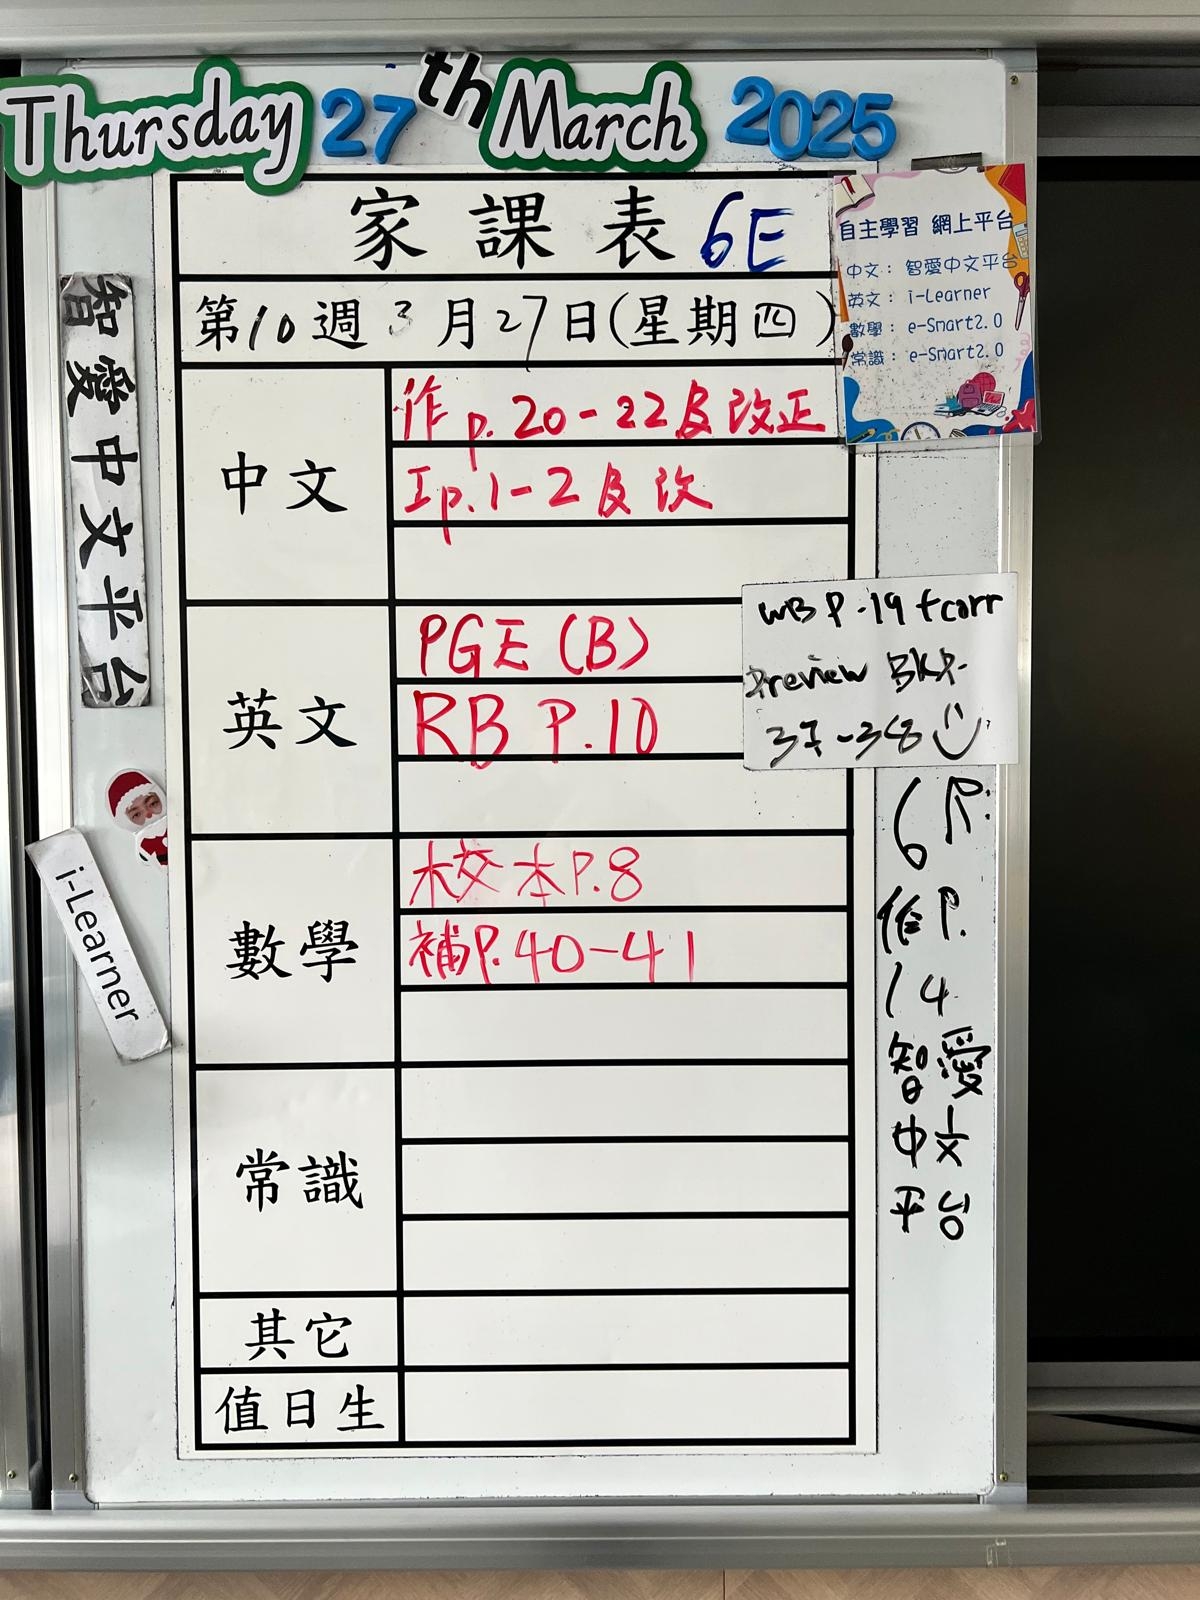 Thursday 27th March 2025
家課表 6E
第10週 3月27日(星期四)
自主學習 網上平台
中文： 智愛中文平台
英文： i-Learner
數學： e-Smart2.0
常識： e-Smart2.0
智愛中文平台
i-Learner
中文
作 p.20-22及改正
工p.1-2及改
英文
PGE (B)
RB P.10
WB P.19 + corr
Preview BK P.
37-38
數學
校本P.8
補P.40-41
常識
其它
值日生
6R:
作P.
14
智愛
中文
平台